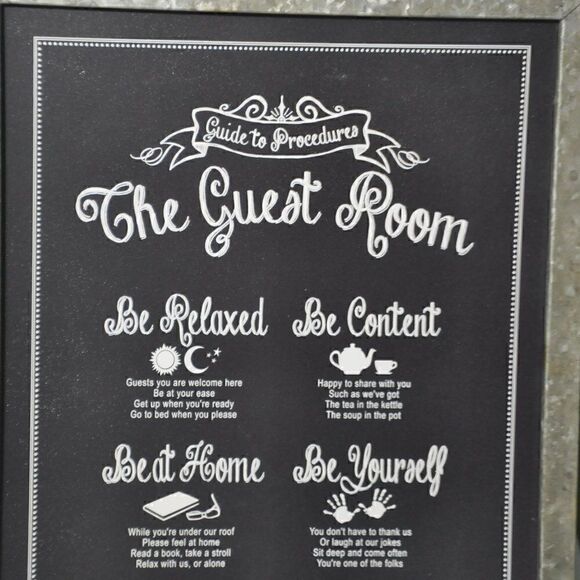 Guide to Procedures
The Guest Room
Be Relaxed
Guests you are welcome here
Be at your ease
Get up when you're ready
Go to bed when you please
Be Content
Happy to share with you
Such as we've got
The tea in the kettle
The soup in the pot
Be at Home
While you're under our roof
Please feel at home
Read a book, take a stroll
Relax with us, or alone
Be Yourself
You don't have to thank us
Or laugh at our jokes
Sit deep and come often
You're one of the folks